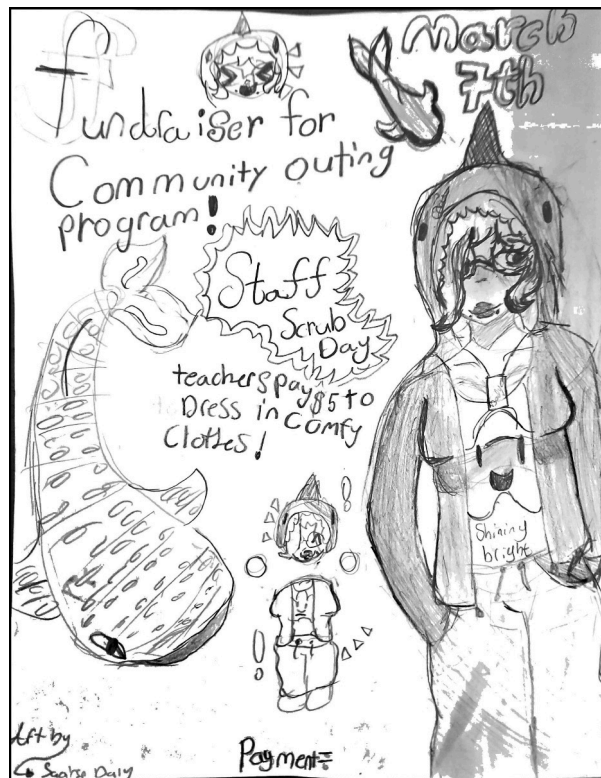 March
7th
fundraiser for
Community outing
program!
Staff
Scrub
Day
teachers pay $5 to
Dress in Comfy
Clothes!
Shining
bright
Payment=
Art by
Daly